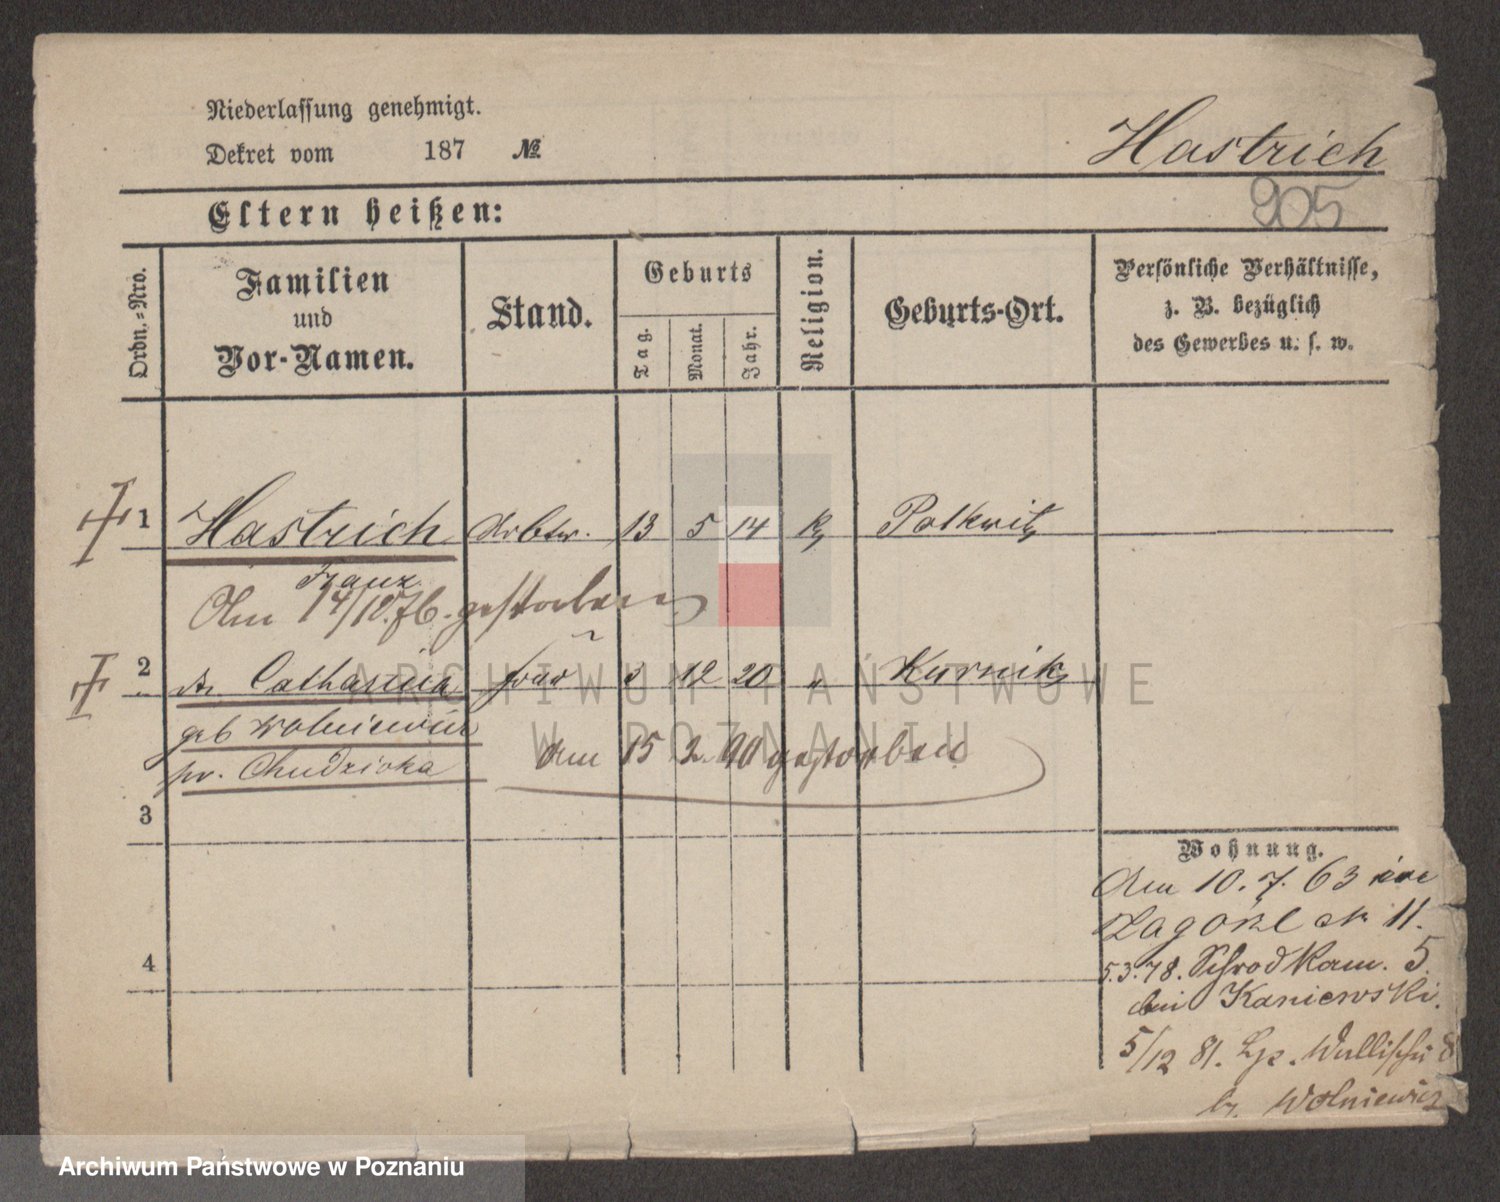 Niederlassung genehmigt.
Dekret vom 187 №
Hastrich
905
Eltern heißen:
Ordn.-Nro.
Familien
und
Vor-Namen.
Stand.
Geburts
Tag.
Monat.
Jahr.
Religion.
Geburts-Ort.
Persönliche Verhältnisse,
z. B. bezüglich
des Gewerbes u. s. w.
1 Hastrich Arbtr. 13 5 14 k Polkwitz
Franz
Am 14/10.76. gestorben
2 Catharina frau 3 12 20 „ Kurnik
geb Wolniewicz
pr. Chudzicka
am 15 2. 90 gestorben
3
4
Wohnung.
Am 10. 7. 63 in
Zagorze 11.
5.3.78. Schrodkam. 5.
bei Kaniewski.
5/12 81. Wallischei 8
b. Wolniewicz
ARCHIWUM PAŃSTWOWE
W POZNANIU
Archiwum Państwowe w Poznaniu